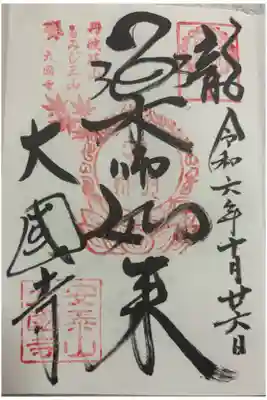 瀧
令和六年十月廿六日
薬師如来
丹波
もみじ三山
大國寺
大國寺
安泰山
大國寺